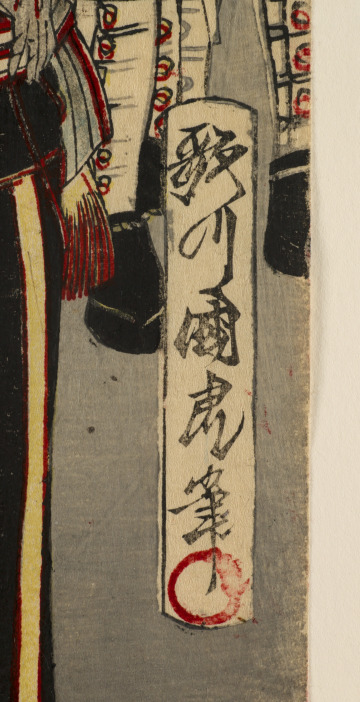 歌川國虎筆